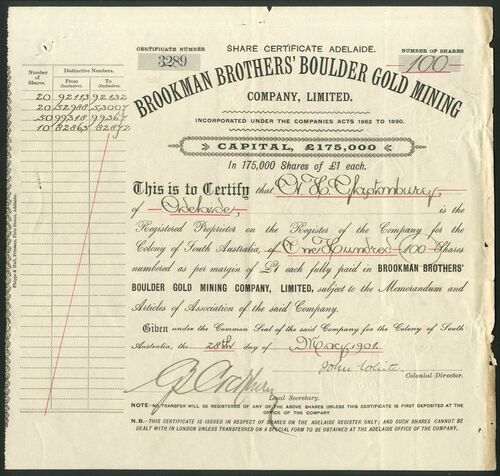 CERTIFICATE NUMBER
3289
SHARE CERTIFICATE ADELAIDE.
NUMBER OF SHARES
100
BROOKMAN BROTHERS' BOULDER GOLD MINING
COMPANY, LIMITED.
INCORPORATED UNDER THE COMPANIES ACTS 1862 TO 1890.
CAPITAL, £175,000
In 175,000 Shares of £1 each.
Number of Shares.
Distinctive Numbers.
From (Inclusive).
To (Inclusive).
20 92113 92132
20 52988 53007
50 99318 99367
10 82863 82872
This is to Certify that W. H. Glastonbury
of Adelaide, is the
Registered Proprietor on the Register of the Company for the
Colony of South Australia, of One Hundred (100) Shares
numbered as per margin of £1 each fully paid in BROOKMAN BROTHERS'
BOULDER GOLD MINING COMPANY, LIMITED, subject to the Memorandum and
Articles of Association of the said Company.
Given under the Common Seal of the said Company for the Colony of South
Australia, the 28th day of May 1901.
John White
Colonial Director.
Local Secretary.
NOTE—NO TRANSFER WILL BE REGISTERED OF ANY OF THE ABOVE SHARES UNLESS THIS CERTIFICATE IS FIRST DEPOSITED AT THE
OFFICE OF THE COMPANY
N.B.—THIS CERTIFICATE IS ISSUED IN RESPECT OF SHARES ON THE ADELAIDE REGISTER ONLY; AND SUCH SHARES CANNOT BE
DEALT WITH IN LONDON UNLESS TRANSFERRED ON A SPECIAL FORM TO BE OBTAINED AT THE ADELAIDE OFFICE OF THE COMPANY.